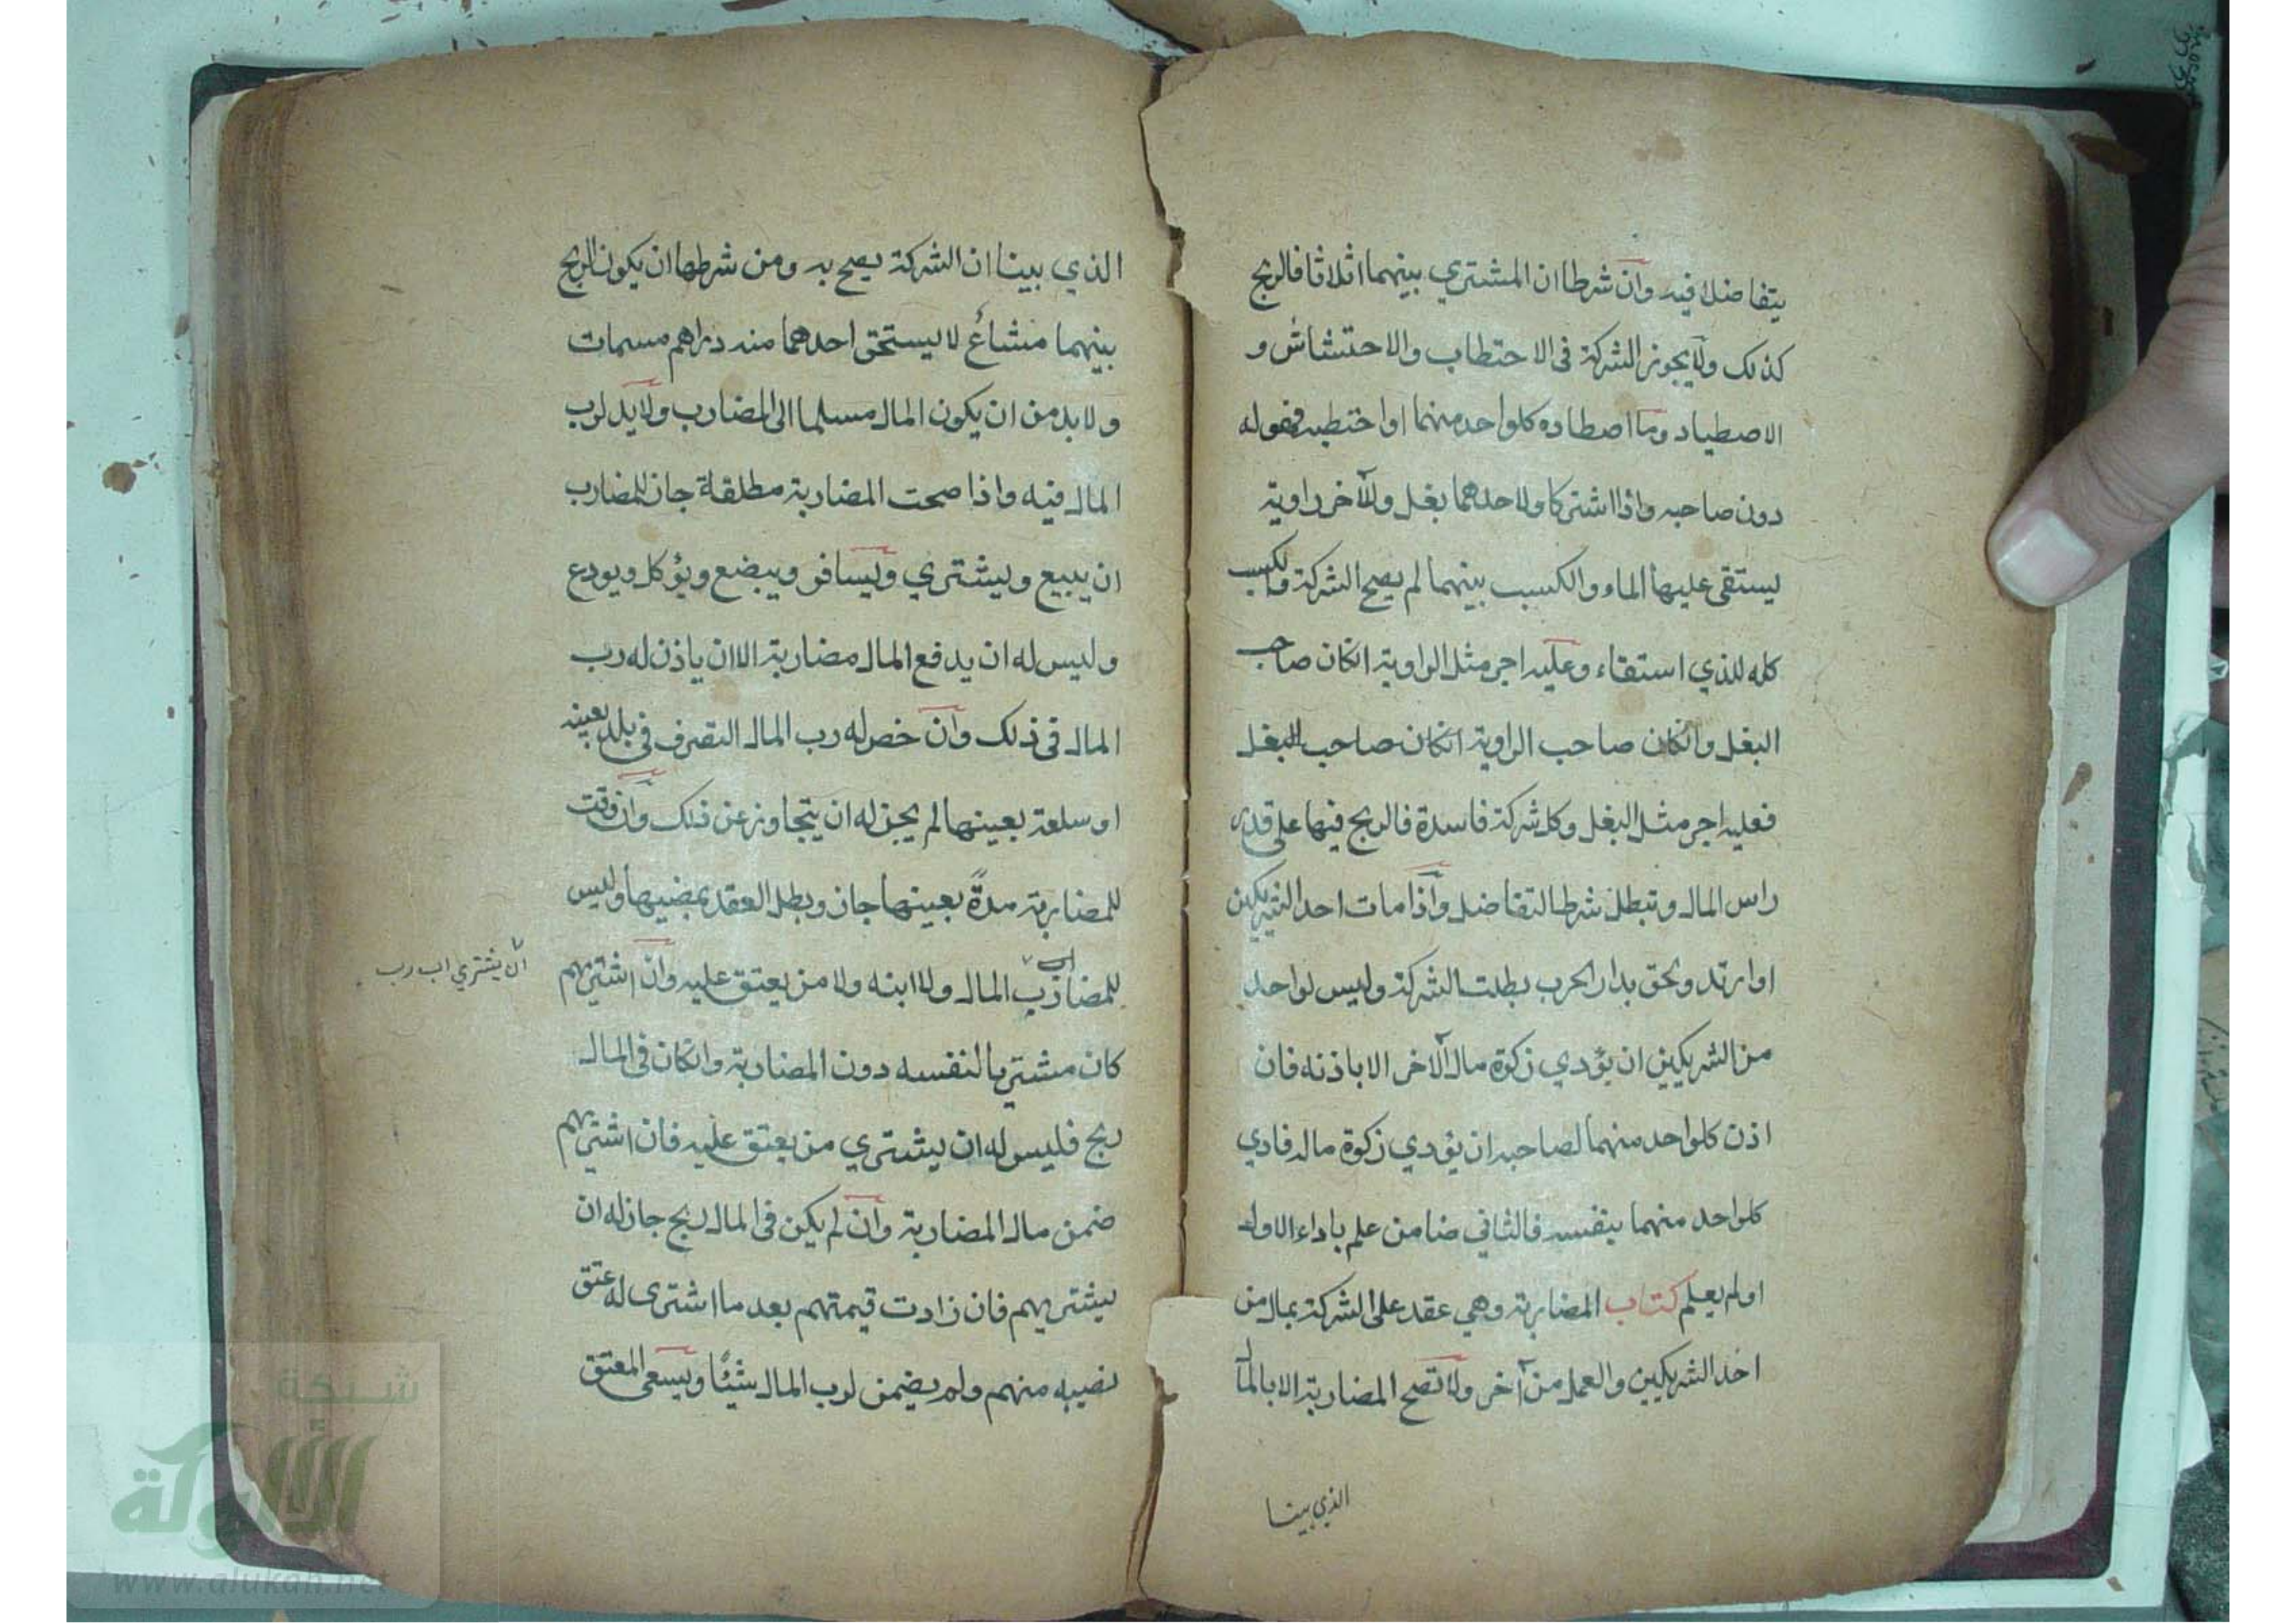 يتفاضلا فيه وان شرطا ان المشتري بينهما اثلاثا فالربح
كذلك ولا يجوز الشركة فى الاحتطاب والاحتشاش و
الاصطياد وما اصطاده كلواحد منهما او احتطبه فهو له
دون صاحبه واذا اشتركا ولاحدهما بغل وللآخر راوية
يستقى عليها الماء والكسب بينهما لم يصح الشركة والكسب
كله للذي استقاء وعليه اجر مثل الراوية انكان صاحب
البغل وانكان صاحب الراوية انكان صاحب البغل
فعليه اجر مثل البغل وكل شركة فاسدة فالربح فيها على قدر
راس المال وتبطل شرط التفاضل واذا مات احد الشريكين
او ارتد ولحق بدار الحرب بطلت الشركة وليس لواحد
من الشريكين ان يؤدي زكوة مال الآخر الا باذنه فان
اذن كلواحد منهما لصاحبه ان يؤدي زكوة ماله فادي
كلواحد منهما بنفسه فالثاني ضامن علم باداء الاول
اولم يعلم كتاب المضاربة وهي عقد على الشركة بمال من
احد الشريكين والعمل من آخر ولا تصح المضاربة الا بالما
الذي بينا
الذي بينا ان الشركة يصح به ومن شرطها ان يكون الربح
بينهما مشاع لا يستحق احدهما منه دراهم مسمات
ولا بد من ان يكون المال مسلما الى المضارب ولا يد لرب
المال فيه واذا صحت المضاربة مطلقة جاز للمضارب
ان يبيع ويشتري ويسافر ويبضع ويؤكل ويودع
وليس له ان يدفع المال مضاربة الا ان ياذن له رب
المال فى ذلك وان خص له رب المال التصرف فى بلد بعينه
او سلعة بعينها لم يجز له ان يتجاوز عن ذلك وان وقت
للمضاربة مدةً بعينها جاز وبطل العقد بمضيها وليس
للمضارب المال ولا ابنه ولا من يعتق عليه وان اشتريهم
ان يشتري اب رب
كان مشتريا لنفسه دون المضاربة وانكان فى المال
ربح فليس له ان يشتري من يعتق عليه فان اشتريهم
ضمن مال المضاربة وان لم يكن فى المال ربح جاز له ان
يشتريهم فان زادت قيمتهم بعد ما اشترى له عتق
نصيبه منهم ولم يضمن لرب المال شيئًا ويسعى المعتق
شبكة
الألوكة
www.alukah.net